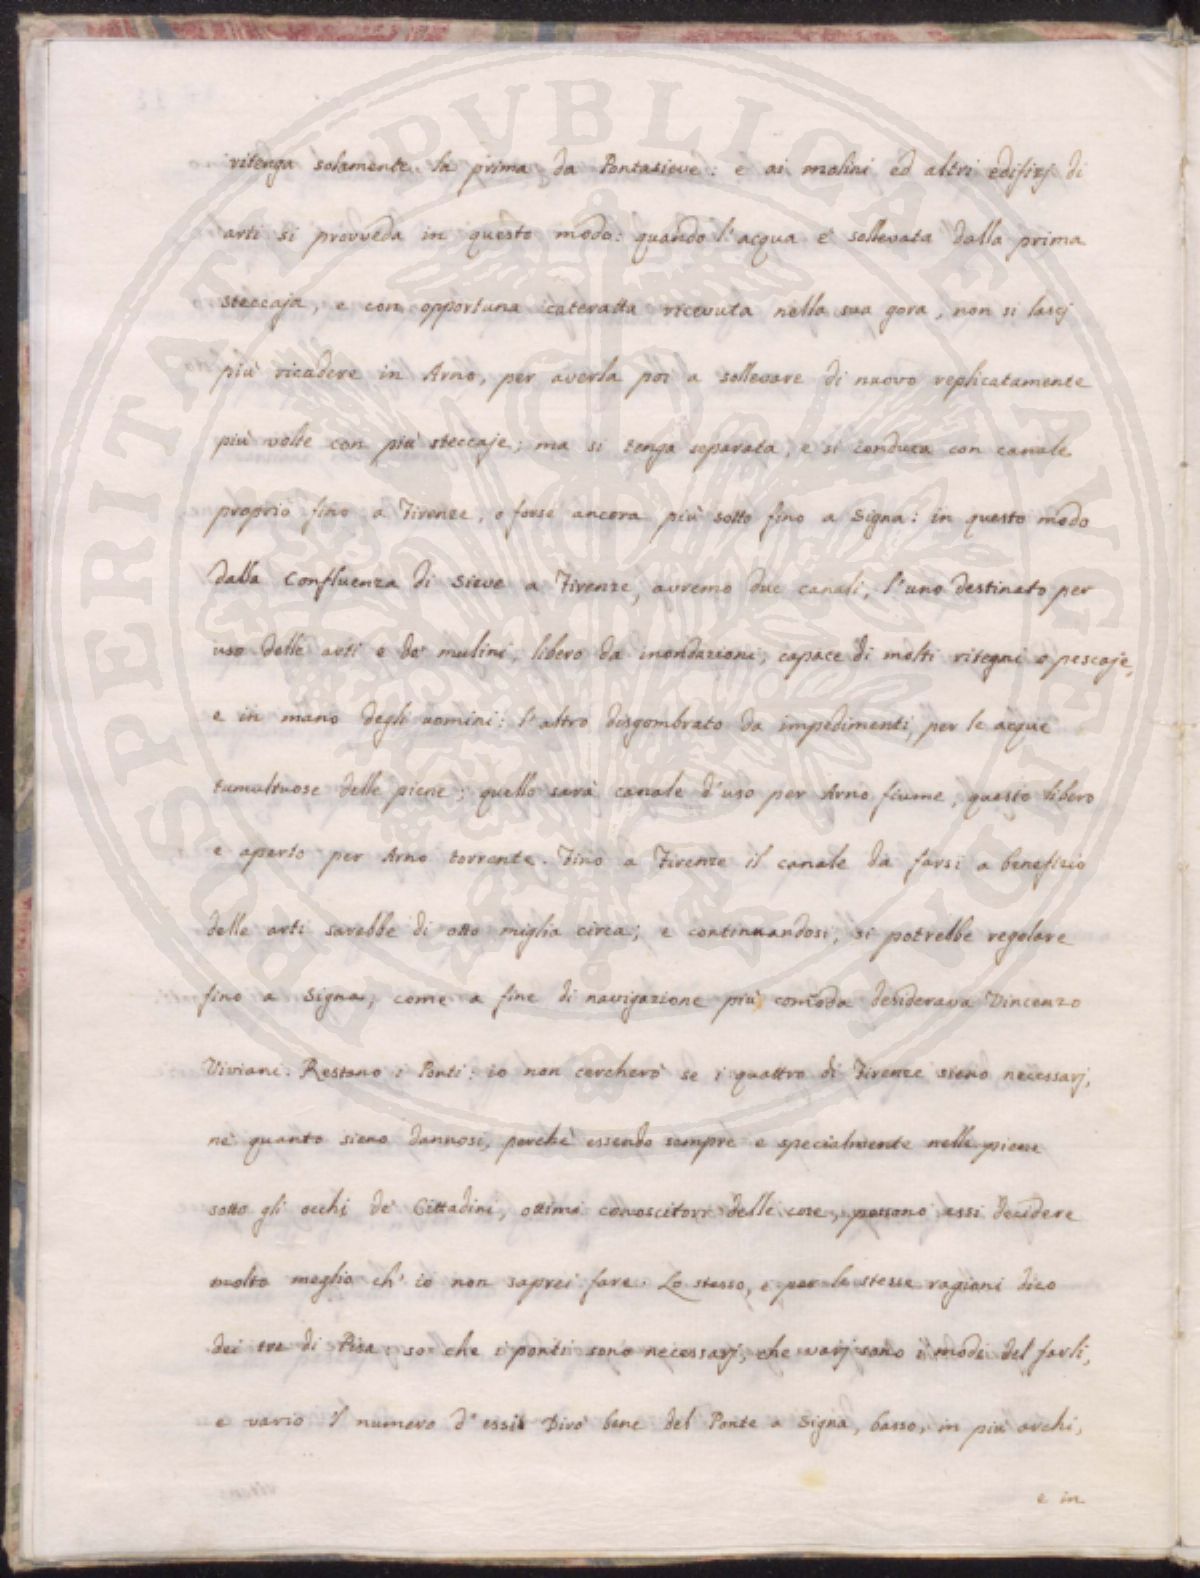 ritenga solamente la prima da Pontasieve: e ai mulini ed altri edifizj di
arti si provveda in questo modo: quando l'acqua è sollevata dalla prima
steccaja, e con opportuna cateratta ricevuta nella sua gora, non si lascj
più ricadere in Arno, per averla poi a sollevare di nuovo replicatamente
più volte con più steccaje; ma si tenga separata, e si conduca con canale
proprio fino a Firenze, o forse ancora più sotto fino a Signa: in questo modo
dalla Confluenza di Sieve a Firenze, avremo due canali, l'uno destinato per
uso delle arti e de' mulini, libero da inondazioni, capace di molti ritegni o pescaje,
e in mano degli uomini: l'altro disgombrato da impedimenti, per le acque
tumultuose delle piene; quello sarà canale d'uso per Arno fiume, questo libero
e aperto per Arno torrente. Fino a Firenze il canale da farsi a benefizio
delle arti sarebbe di otto miglia circa; e continuandosi, si potrebbe regolare
fino a Signa, come a fine di navigazione più comoda desiderava Vincenzo
Viviani. Restano i Ponti: io non cercherò se i quattro di Firenze sieno necessarj,
nè quanto sieno dannosi, perchè essendo sempre e specialmente nelle piene
sotto gli occhi de' Cittadini, ottimi conoscitori delle cose, possono essi decidere
molto meglio ch' io non saprei fare. Lo stesso, e per le stesse ragioni dico
dei tre di Pisa: so che i ponti sono necessarj, che varj sono i modi del farli,
e vario il numero d' essi. Dirò bene del Ponte a Signa, basso, in più archi,
e in
PROSPERITATI PVBLICAE AVGENDAE